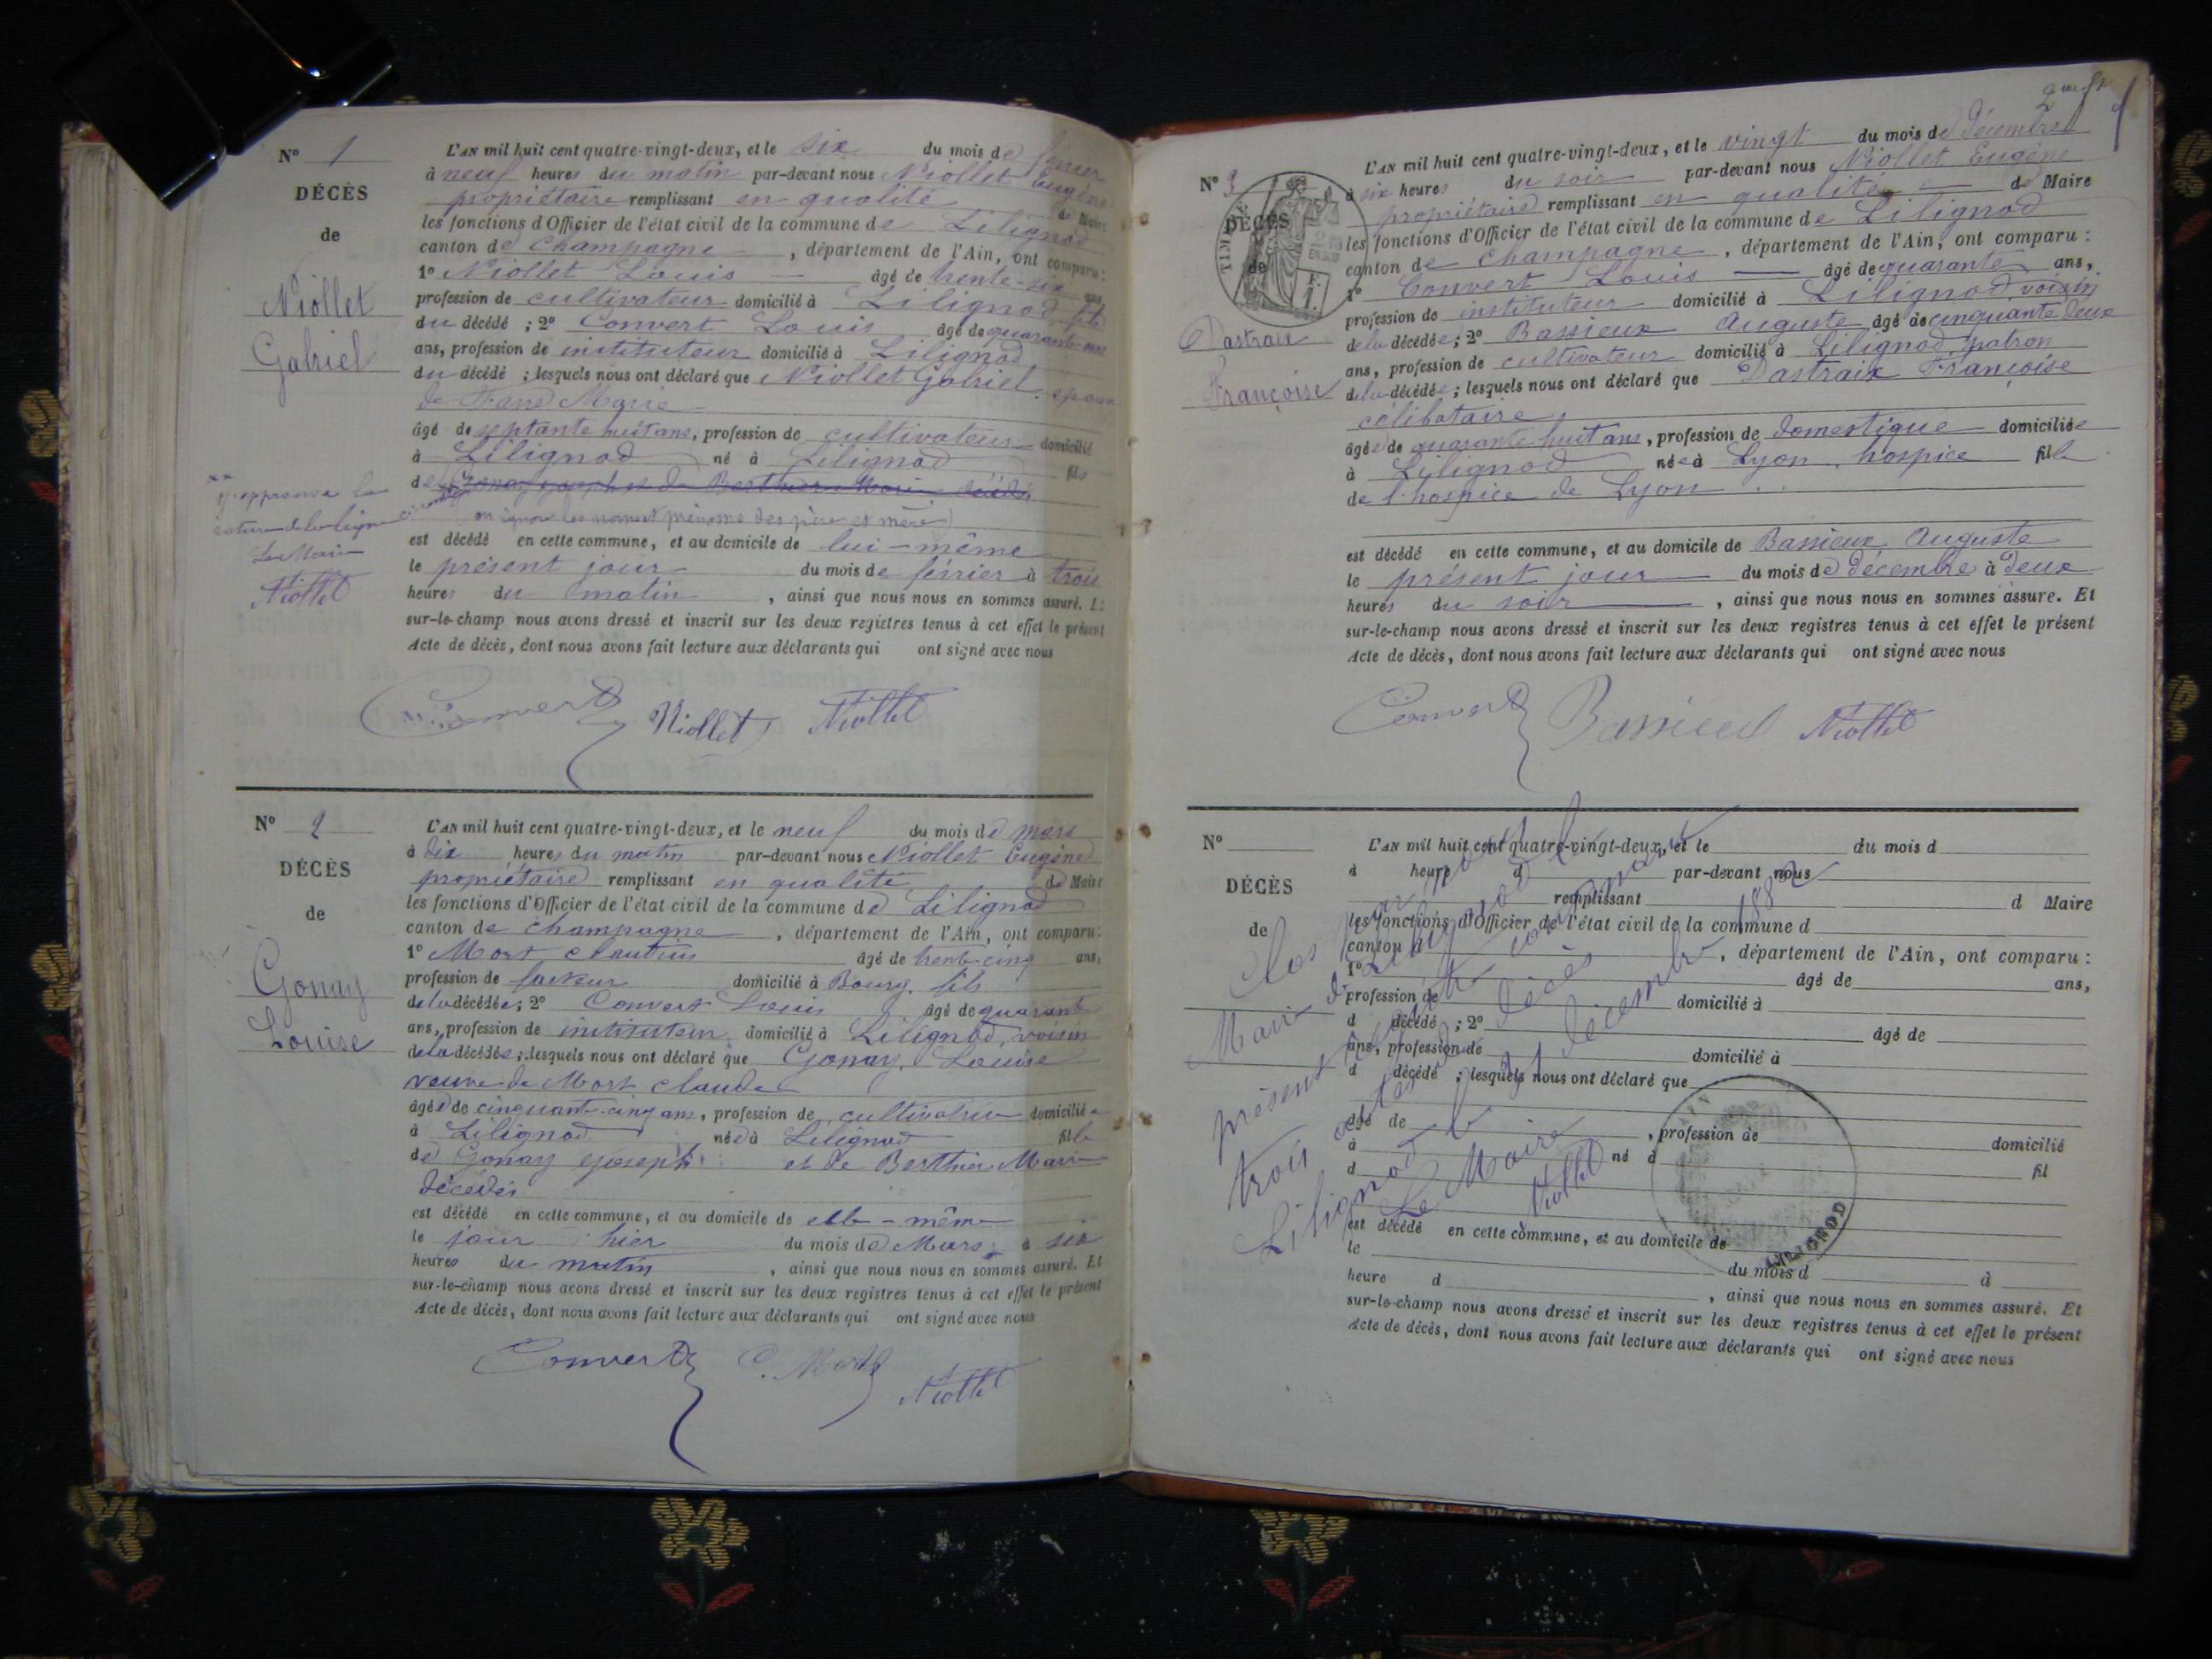 N° 1
DÉCÈS
de
Niollet
Gabriel
L'AN mil huit cent quatre-vingt-deux, et le six du mois de février
à neuf heures du matin par-devant nous Niollet Eugène
propriétaire remplissant en qualité de Maire
les fonctions d'Officier de l'état civil de la commune de Lilignod
canton de Champagne, département de l'Ain, ont comparu :
1° Niollet Louis âgé de trente-six ans,
profession de cultivateur domicilié à Lilignod fils
du décédé ; 2° Convert Louis âgé de quarante
ans, profession de instituteur domicilié à Lilignod
du décédé ; lesquels nous ont déclaré que Niollet Gabriel, époux
de Marie
âgé de septante huit ans, profession de cultivateur domicilié
à Lilignod né à Lilignod fils
de Gonay Joseph et de Berthier Marie décédés
on ignore les noms et prénoms des père et mère
J'approuve la
rature de la ligne
Le Maire
Niollet
est décédé en cette commune, et au domicile de lui-même
le présent jour du mois de février à trois
heures du matin, ainsi que nous nous en sommes assuré. Et
sur-le-champ nous avons dressé et inscrit sur les deux registres tenus à cet effet le présent
Acte de décès, dont nous avons fait lecture aux déclarants qui ont signé avec nous
Convert Niollet Niollet
N° 2
DÉCÈS
de
Gonay
Louise
L'AN mil huit cent quatre-vingt-deux, et le neuf du mois de mars
à dix heures du matin par-devant nous Niollet Eugène
propriétaire remplissant en qualité de Maire
les fonctions d'Officier de l'état civil de la commune de Lilignod
canton de Champagne, département de l'Ain, ont comparu :
1° Mort Claudius âgé de trente-cinq ans,
profession de facteur domicilié à Bourg, fils
de la décédée ; 2° Convert Louis âgé de quarante
ans, profession de instituteur domicilié à Lilignod, voisin
de la décédée ; lesquels nous ont déclaré que Gonay, Louise
veuve de Mort Claude
âgée de cinquante-cinq ans, profession de cultivatrice domiciliée
à Lilignod née à Lilignod fille
de Gonay Joseph et de Berthier Marie
décédés
est décédé en cette commune, et au domicile de elle-même
le jour hier du mois de Mars à six
heures du matin, ainsi que nous nous en sommes assuré. Et
sur-le-champ nous avons dressé et inscrit sur les deux registres tenus à cet effet le présent
Acte de décès, dont nous avons fait lecture aux déclarants qui ont signé avec nous
Convert C. Mort Niollet
N° 3
DÉCÈS
de
Dastraix
Françoise
L'AN mil huit cent quatre-vingt-deux, et le vingt du mois de décembre
à six heures du soir par-devant nous Niollet Eugène
propriétaire remplissant en qualité de Maire
les fonctions d'Officier de l'état civil de la commune de Lilignod
canton de Champagne, département de l'Ain, ont comparu :
1° Convert Louis âgé de quarante ans,
profession de instituteur domicilié à Lilignod, voisin
de la décédée ; 2° Bassieux Auguste âgé de cinquante deux
ans, profession de cultivateur domicilié à Lilignod, patron
de la décédée ; lesquels nous ont déclaré que Dastraix Françoise
célibataire
âgée de quarante-huit ans, profession de domestique domiciliée
à Lilignod née à Lyon, hospice fille
de l'hospice de Lyon
est décédé en cette commune, et au domicile de Bassieux Auguste
le présent jour du mois de décembre à deux
heures du soir, ainsi que nous nous en sommes assuré. Et
sur-le-champ nous avons dressé et inscrit sur les deux registres tenus à cet effet le présent
Acte de décès, dont nous avons fait lecture aux déclarants qui ont signé avec nous
Convert Bassieux Niollet
N°
DÉCÈS
de
L'AN mil huit cent quatre-vingt-deux, et le du mois d
à heure d par-devant nous
remplissant d Maire
les fonctions d'Officier de l'état civil de la commune d
canton d, département de l'Ain, ont comparu :
1° âgé de ans,
profession de domicilié à
d décédé ; 2° âgé de
ans, profession de domicilié à
d décédé ; lesquels nous ont déclaré que
âgé de, profession de domicilié
à né à fil
d
est décédé en cette commune, et au domicile de
le du mois d à
heure d, ainsi que nous nous en sommes assuré. Et
sur-le-champ nous avons dressé et inscrit sur les deux registres tenus à cet effet le présent
Acte de décès, dont nous avons fait lecture aux déclarants qui ont signé avec nous
Clos par nous
Maire de Lilignod le
présent registre contenant
trois actes de décès
Lilignod le 31 décembre 1882
Le Maire
Niollet
LILIGNOD